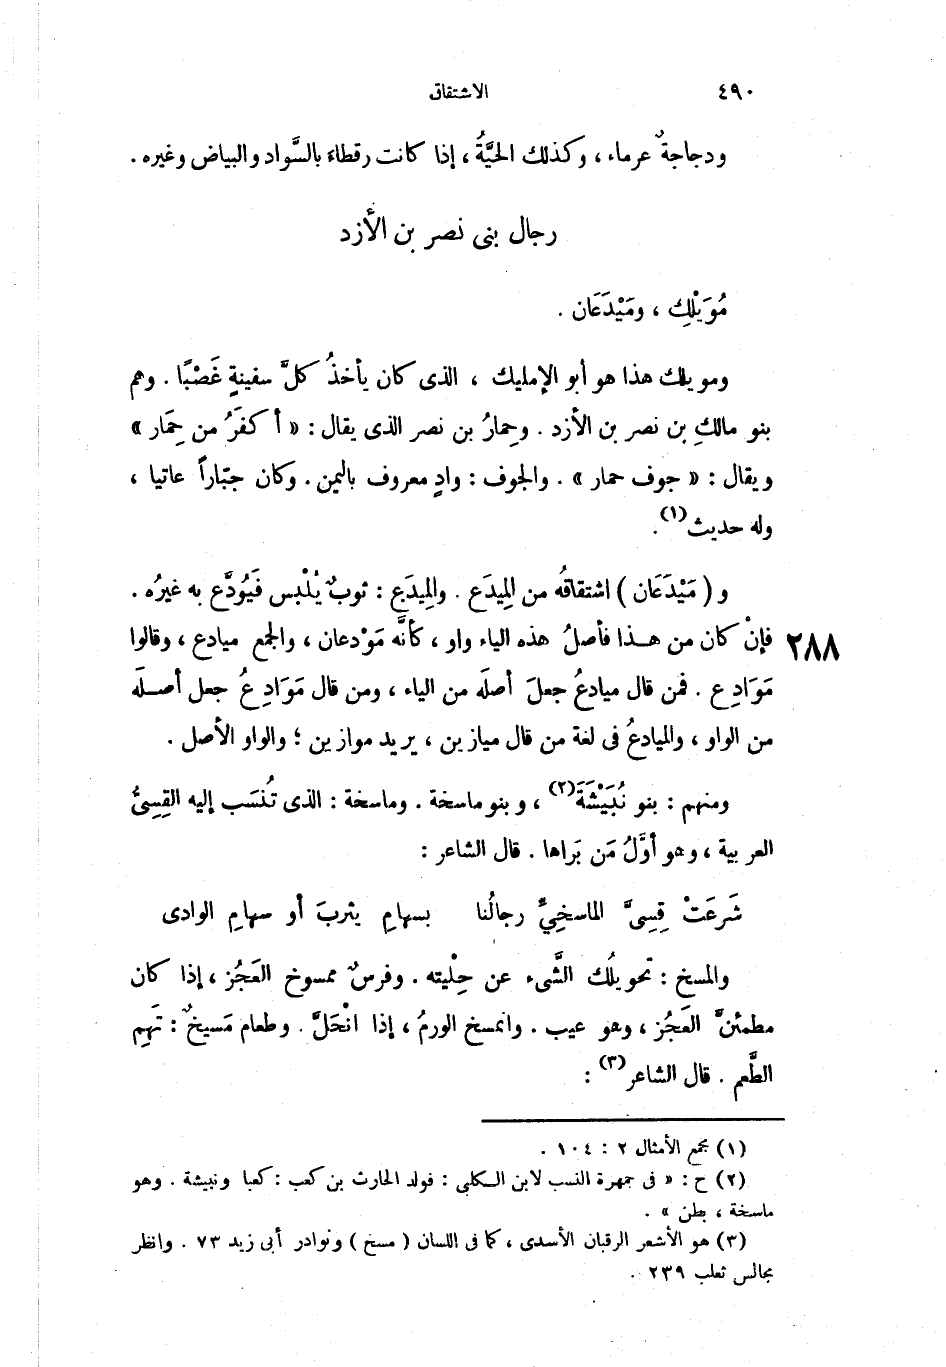 ٤٩٠ الاشتقاق
ودجاجةٌ عرماء ، وكذلك الحَيَّةُ ، إذا كانت رقطاءَ بالسَّواد والبياض وغيره .
رجال بنى نصر بن الأزد
مُوَيْلِك ، ومَيْدَعَان .
ومويلك هذا هو أبو الإمليك ، الذى كان يأخذُ كلَّ سفينةٍ غَصْبًا . وهم
بنو مالكِ بن نصر بن الأزد . وحِمارُ بن نصر الذى يقال : « أكفَرُ من حِمَار »
ويقال : « جوف حمار » . والجوف : وادٍ معروف باليمن . وكان جبّاراً عاتيا ،
وله حديث(١) .
و ( مَيْدَعَان ) اشتقاقُه من المِيدَع . والمِيدَع : ثوبٌ يُلْبس فَيُودَّع به غيرُه .
٢٨٨ فإنْ كان من هـذا فأصلُ هذه الياء واو ، كأنَّه مَوْدعان ، والجمع ميادع ، وقالوا
مَوَادِع . فمن قال ميادعُ جعلَ أصلَه من الياء ، ومن قال مَوَادِعُ جعل أصـلَه
من الواو ، والميادعُ فى لغة من قال ميازين ، يريد موازين ؛ والواو الأصل .
ومنهم : بنو نُبَيْشَةَ(٢) ، وبنو ماسخة . وماسخة : الذى تُنسَب إليه القِسِىُّ
العربية ، وهو أوَّلُ مَن بَراها . قال الشاعر :
شَرعَتْ قِسِىَّ الماسخِىِّ رجالُنا بسهامِ يثربَ أو سهامِ الوادى
والمسخ : تحويلُك الشَّىء عن حِلْيته . وفرسٌ ممسوخ العَجُز ، إذا كان
مطمئنَّ العَجُز ، وهو عيب . وانمسخ الورمُ ، إذا انْحَلَّ . وطعام مَسيخٌ : تَهِم
الطَّعم . قال الشاعر(٣) :
(١) مجمع الأمثال ٢ : ١٠٤ .
(٢) ح : « فى جمهرة النسب لابن الـكلبى : فولد الحارث بن كعب : كعبا ونبيشة . وهو
ماسخة ، بطن » .
(٣) هو الأشعر الرقبان الأسدى ، كما فى اللسان ( مسخ ) ونوادر أبى زيد ٧٣ . وانظر
مجالس ثعلب ٢٣٩ .